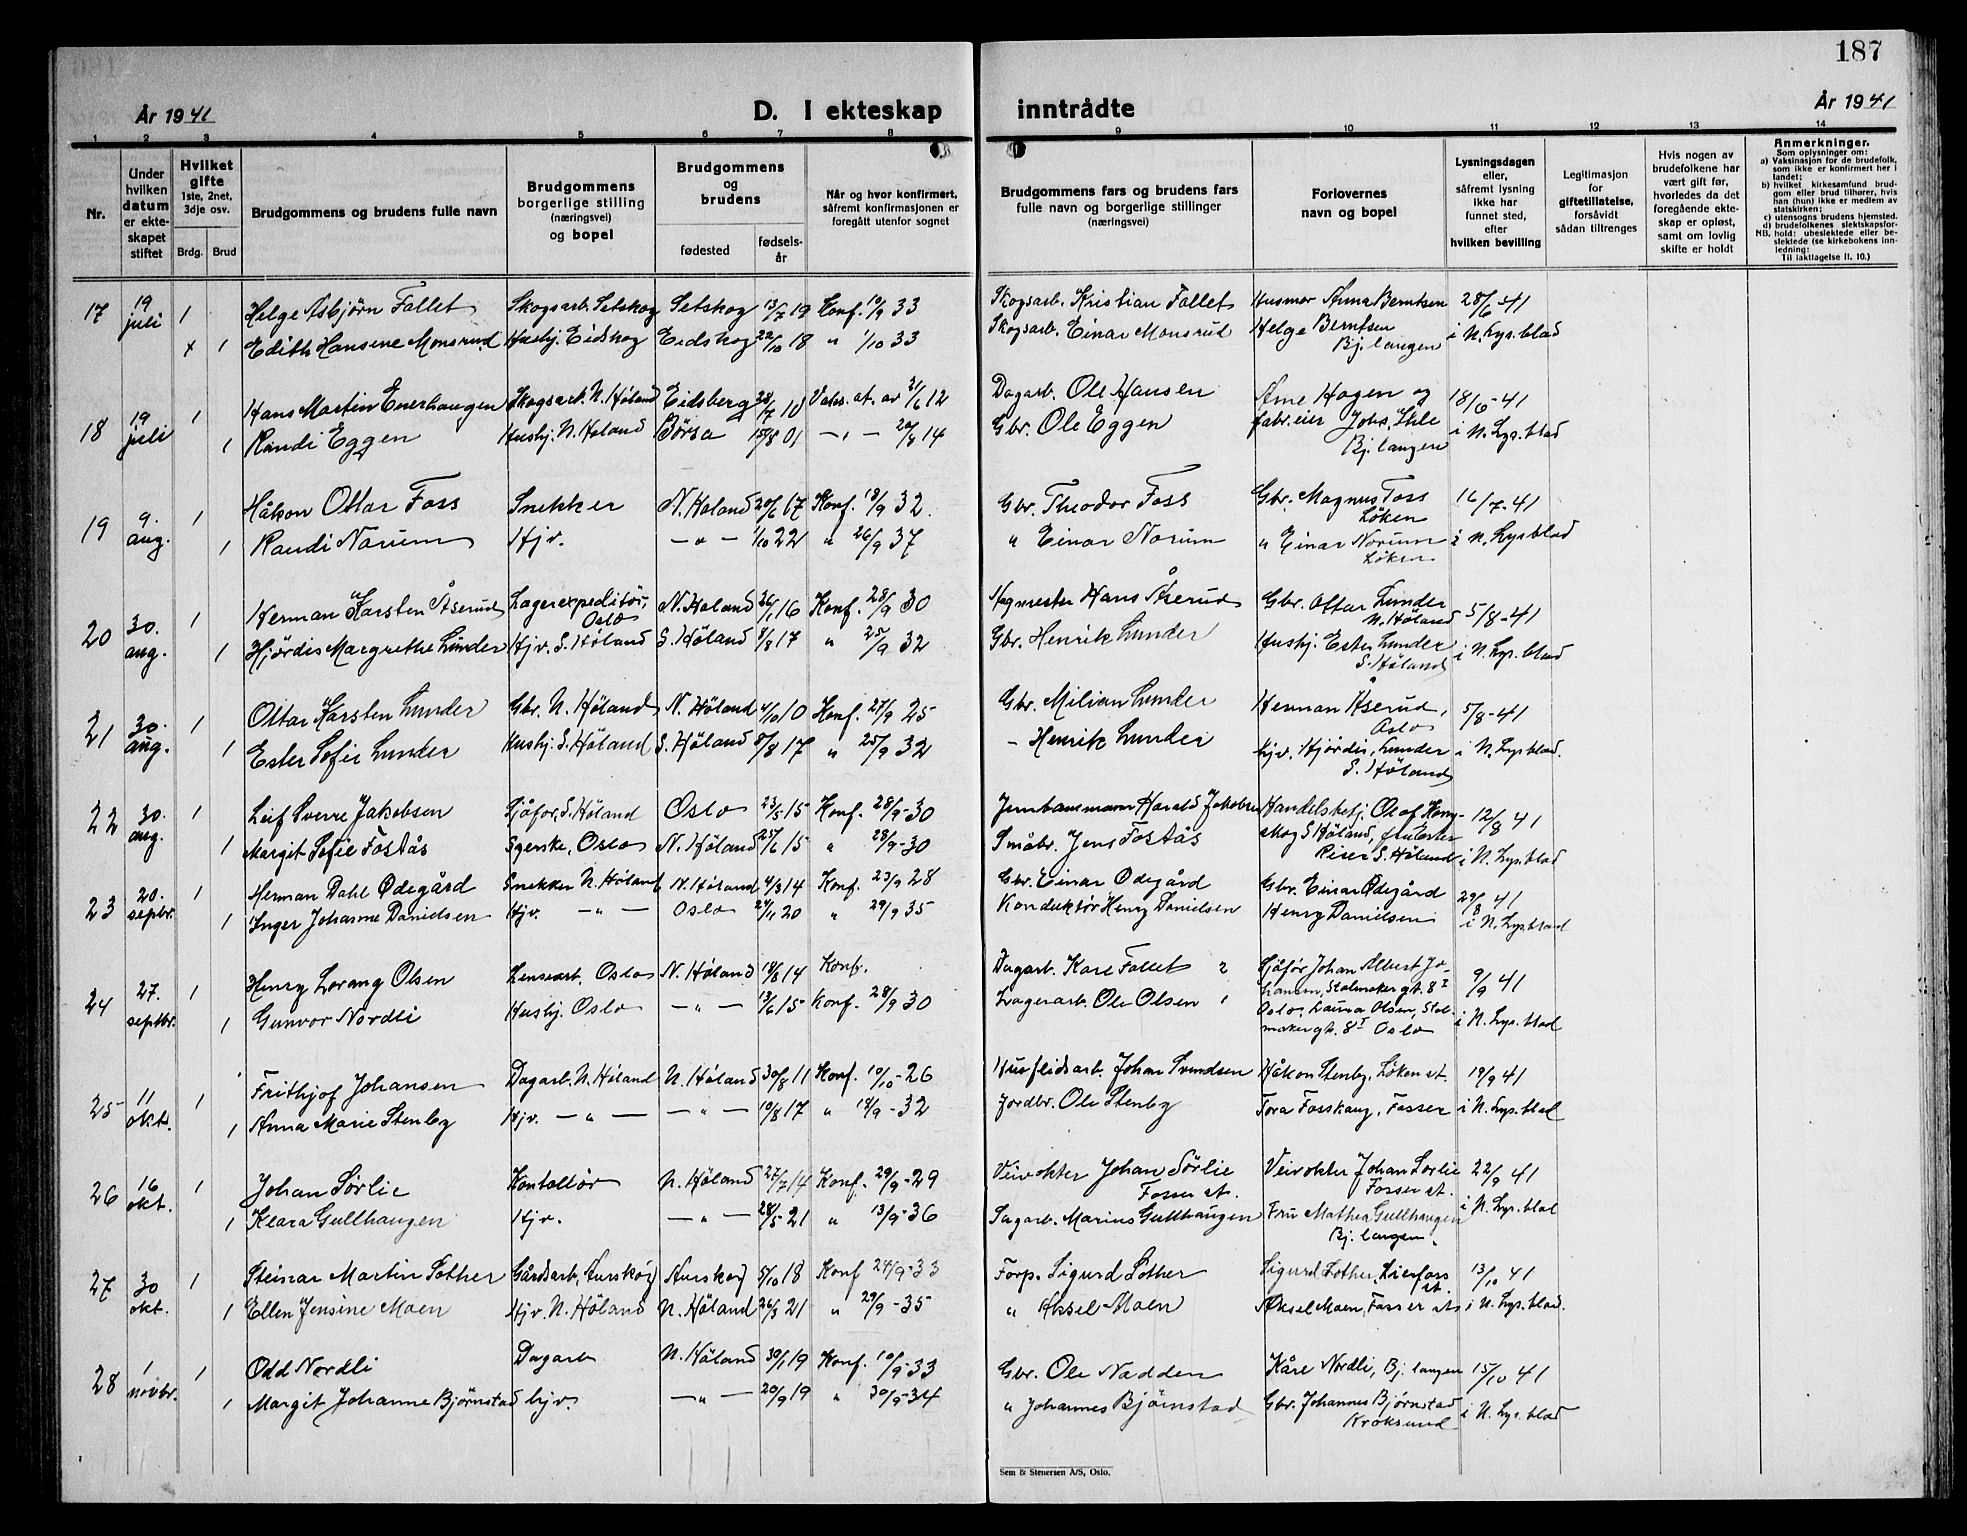 187
År 1941 D. I ekteskap inntrådte År 1941
1 2 3 4 5 6 7 8 9 10 11 12 13 14
Nr.
Under hvilken datum er ekteskapet stiftet
Hvilket gifte 1ste, 2net, 3dje osv.
Brdg. Brud
Brudgommens og brudens fulle navn
Brudgommens borgerlige stilling (næringsvei) og bopel
Brudgommens og brudens
fødested fødselsår
Når og hvor konfirmert, såfremt konfirmasjonen er foregått utenfor sognet
Brudgommens fars og brudens fars fulle navn og borgerlige stillinger (næringsvei)
Forlovernes navn og bopel
Lysningsdagen eller, såfremt lysning ikke har funnet sted, efter hvilken bevilling
Legitimasjon for giftetillatelse, forsåvidt sådan tiltrenges
Hvis nogen av brudefolkene har vært gift før, hvorledes da det foregående ekteskap er opløst, samt om lovlig skifte er holdt
Anmerkninger.
Som oplysninger om:
a) Vaksinasjon for de brudefolk, som ikke er konfirmert her i landet;
b) hvilket kirkesamfund brudgom eller brud tilhører, hvis han (hun) ikke er medlem av statskirken;
c) utensogns brudens hjemsted.
d) brudefolkenes slektskapsforhold: ubeslektede eller beslektede (se kirkebokens innledning:
NB.
Til iakttagelse II. 10.)
17 19 juli 1 Helge Asbjørn Fallet Skogsarb. Setskog Setskog 13/7 19 Konf. 10/9 33 Skogsarb. Kristian Fallet Husmor Anna Berntsen 28/6-41
x 1 Edith Hansine Monsrud Hushj. Eidskog Eidskog 22/10 18 " 1/10 33 Skogsarb. Einar Monsrud Helge Berntsen Bj.langen i N. Lys.blad
18 19 juli 1 Hans Martin Enerhaugen Skogsarb. N. Høland Eidsberg 28/7 10 Vaks. at. av 21/6 12 Dagarb. Ole Hansen Arne Hagen og 18/6-41
1 Randi Eggen Hushj. N. Høland Børsa 15/8 01 - " - 20/8 14 Gbr. Ole Eggen fabr.eier Johs. Ihle Bj.langen i N. Lys.blad
19 9. aug. 1 Håkon Ottar Foss Snekker N. Høland 20/6 17 Konf. 18/9 32. Gbr. Theodor Foss Gbr. Magnus Foss Løken 16/7-41
1 Randi Norum Hjv. - " - 1/10 22 " 26/9 37 " Einar Norum " Einar Norum Løken i N. Lys.blad
20 30. aug. 1 Herman Karsten Åserud Lagerexpeditør, Oslo N. Høland 26/1 16 Konf. 28/9 30 Hans Åserud Gbr. Ottar Lunder N. Høland 5/8-41
1 Hjørdis Margrethe Lunder Hjv. S. Høland S. Høland 8/8 17 " 25/9 32 Gbr. Henrik Lunder Hushj. Ester Lunder S. Høland i N. Lys.blad
21 30. aug. 1 Ottar Karsten Lunder Gbr. N. Høland N. Høland 4/10 10 Konf. 27/9 25 Gbr. Milian Lunder Herman Åserud, Oslo 5/8-41
1 Ester Sofie Lunder Hushj. S. Høland S. Høland 8/8 17 " 25/9 32 - Henrik Lunder Hjv. Hjørdis Lunder S. Høland i N. Lys.blad.
22 30. aug. 1 Leif Sverre Jakobsen Sjåfør, S. Høland Oslo 23/5 15 Konf. 28/9-30 Jernbanemann Harald Jakobsen Handelsbetj. Olaf Kong- 12/8 41
1 Margit Sofie Fostås Syerske, Oslo N. Høland 25/6 15 " 28/9-30 Småbr. Jens Fostås skog S. Høland, fru Ester Riser S. Høland i N. Lys.blad
23 20. septbr. 1 Herman Dahl Ødegård Snekker N. Høland N. Høland 4/3 14 Konf. 23/9 28 Gbr. Einar Ødegård Gbr. Einar Ødegård 29/8 41
1 Inger Johanne Danielsen Hjv. - " - Oslo 24/11 20 " 29/9 35 Konduktør Henry Danielsen Henry Danielsen i N. Lys.blad
24 27. septbr. 1 Henry Lorang Olsen Lensearb. Oslo N. Høland 18/8 14 Konf. Dagarb. Kare Fallet 2 Sjåfør Johan Albert Jo- 9/9 41
1 Gunvor Nordli Hushj. Oslo - " - 13/6 15 Konf. 28/9 30 Lagerarb. Ole Olsen 1 hansen, Stolmaker gt. 8 I Oslo, Laura Olsen, Stolmakergt. 8 I Oslo i N. Lys.blad
25 11 okt. 1 Frithjof Johansen Dagarb. N. Høland N. Høland 30/8 11 Konf. 10/10-26 Husflidsarb. Johan Svendsen Håkon Stenby, Løken st. 19/9 41
1 Anna Marie Stenby Hjv. - " - - " - 10/8 17 " 18/9-32 Jordbr. Ole Stenby Tora Fosskaug, Fosser i N. Lys.blad
26 16 okt. 1 Johan Sørlie Kontollør N. Høland 27/7 14 Konf. 29/9-29 Veivokter Johan Sørlie Fosser st. Veivokter Johan Sørlie Fosser st. 22/9 41
1 Klara Gullhaugen Hjv. - " - 28/5 21 " 13/9-36 Sagarb. Marius Gullhaugen Fru Mathea Gullhaugen Bj.langen. i N. Lys.blad
27 30 okt. 1 Steinar Martin Sother Gårdsarb, Aurskog Aurskog 5/10 18 Konf 24/9-33 Forp. Sigurd Sother Sigurd Sother, Lierfoss st. 13/10 41
1 Ellen Jensine Moen Hjv. N. Høland N. Høland 26/3 21 " 29/9-35 " Aksel Moen Aksel Moen, Fosser st. i N. Lys.blad.
28 1 novbr. 1 Odd Nordli Dagarb N. Høland 30/1 19 Konf. 10/9-33 Gbr. Ole Nadden Kåre Nordli, Bj.langen 15/10 41
1 Margit Johanne Bjørnstad hjv. - " - 20/9 19 " 30/9-34 " Johannes Bjørnstad Gbr. Johannes Bjørnstad Kroksund i N. Lys.blad
Sem & Stenersen A/S, Oslo.